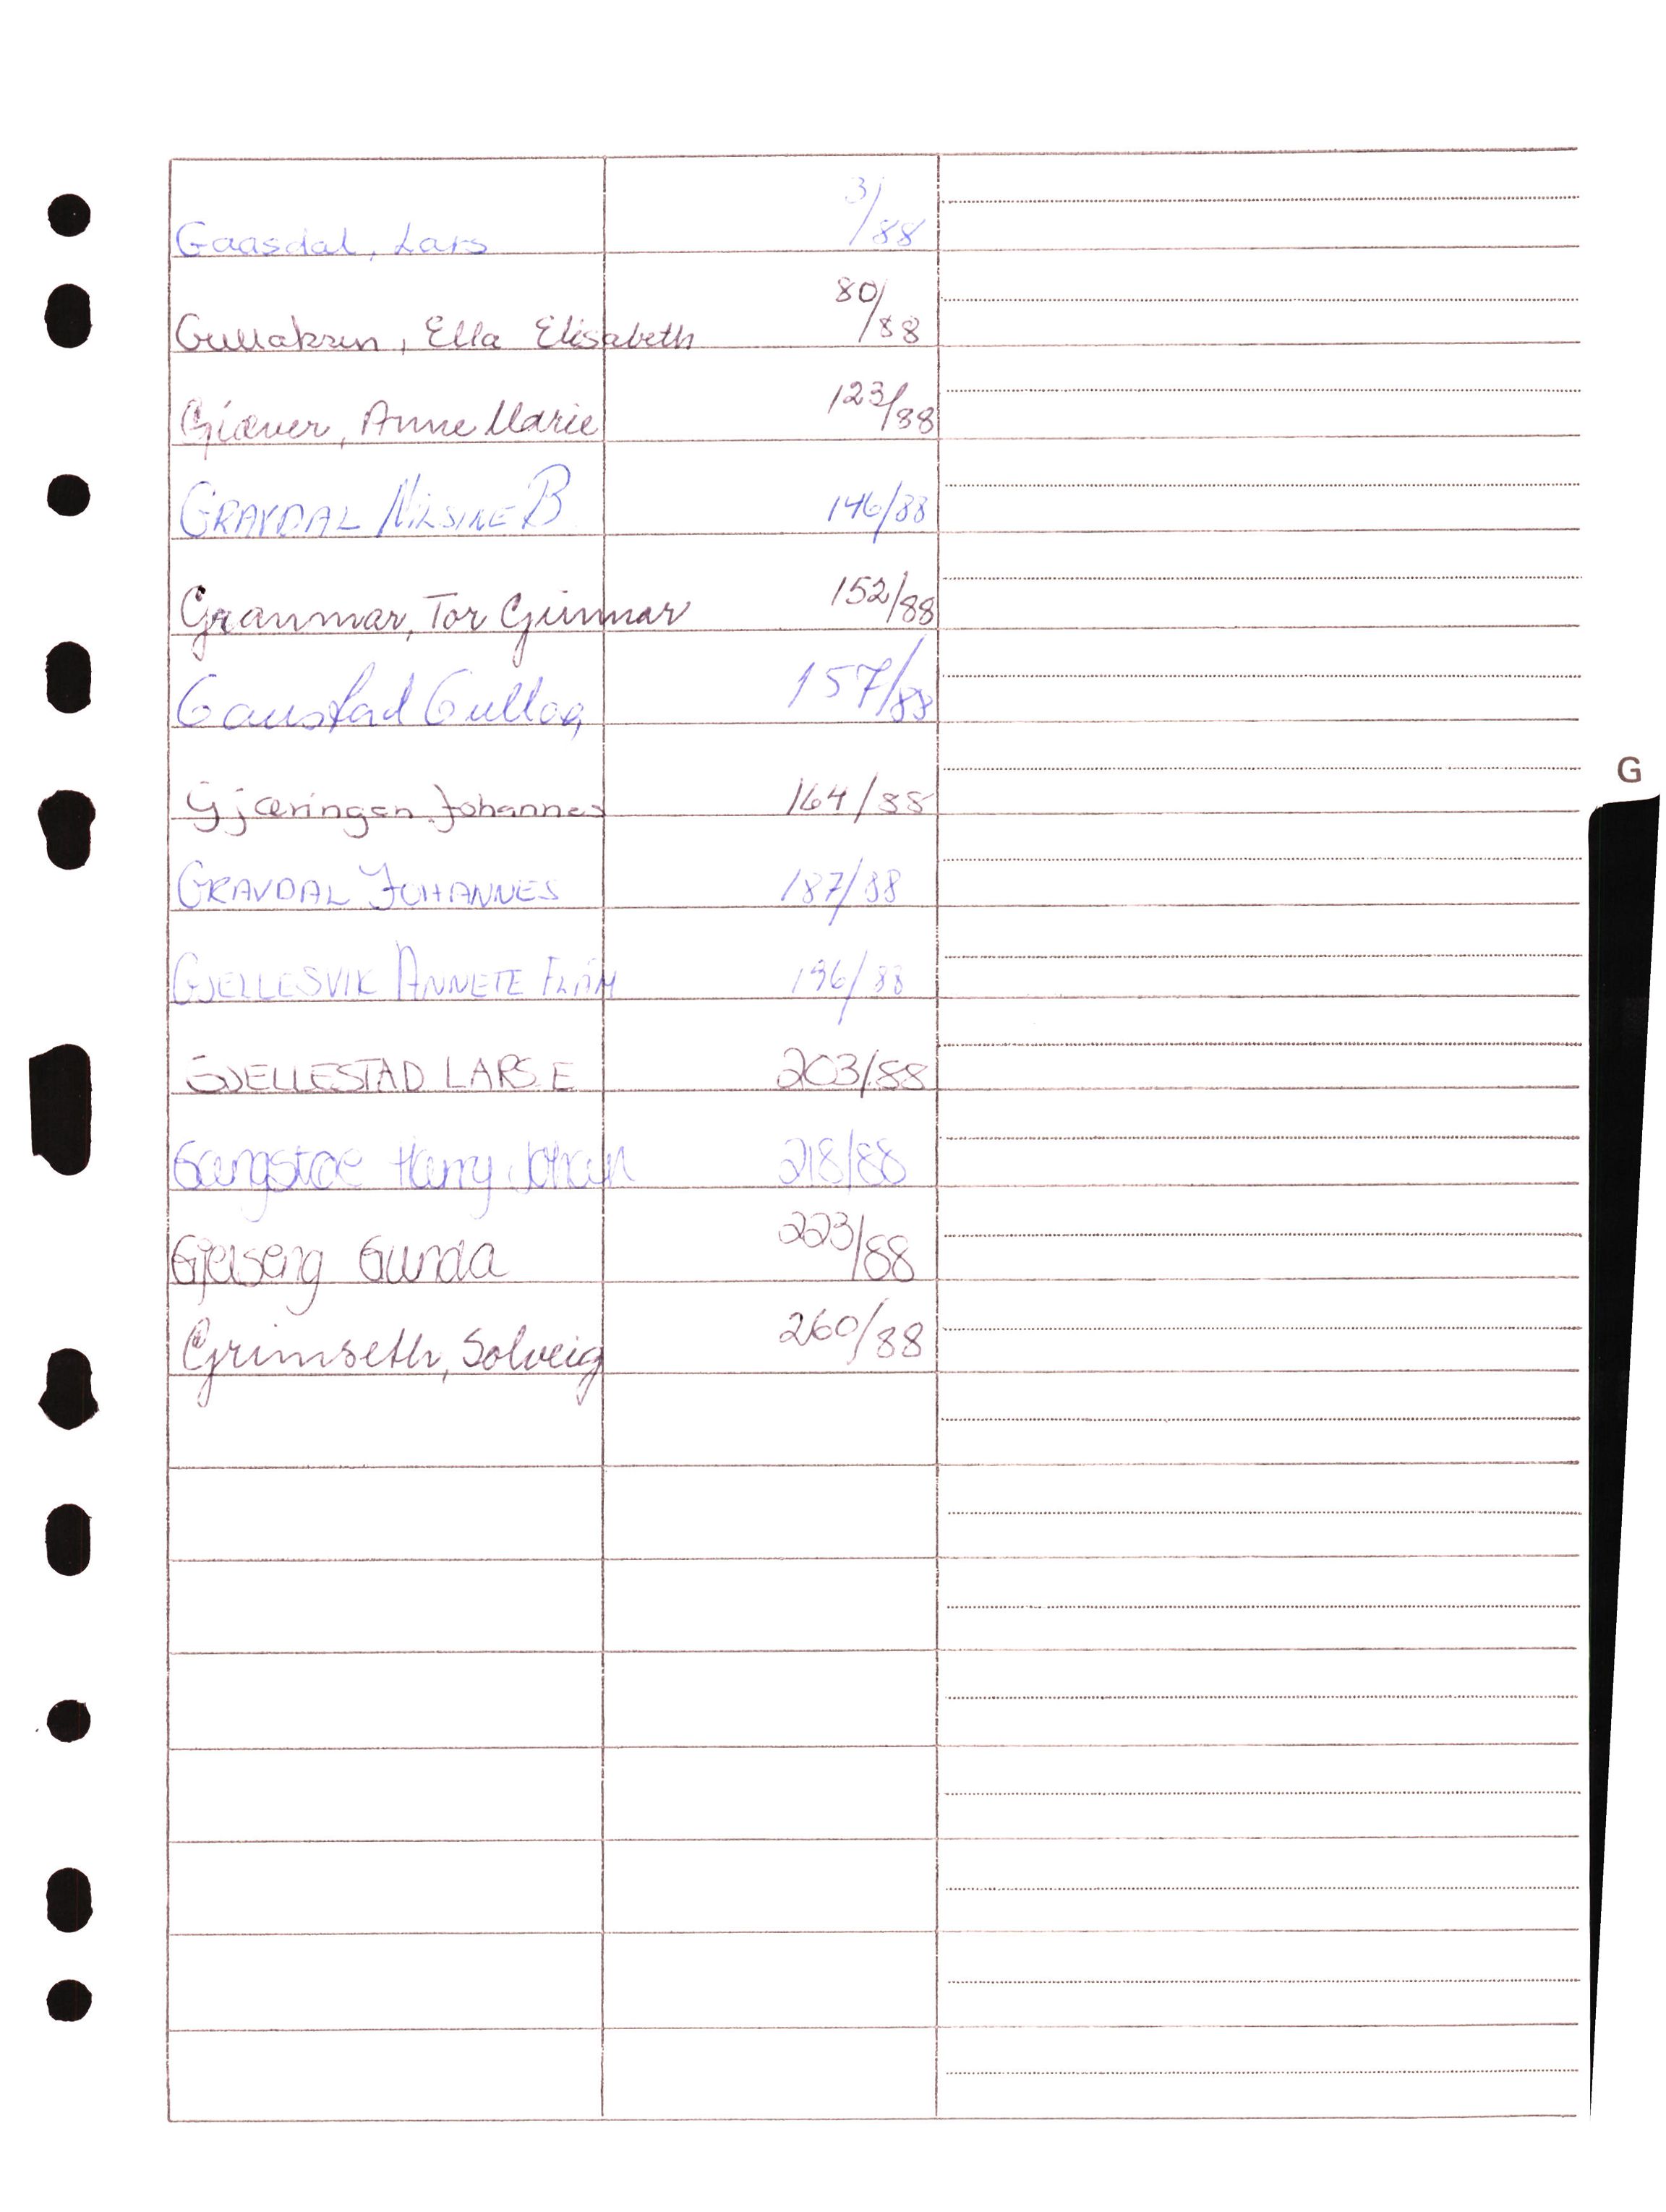 Gaasdal, Lars 3/88
Gullaksen, Ella Elisabeth 80/88
Giæver, Anne Marie 123/88
GRAVDAL NILSINE B 146/88
Granmar, Tor Gunnar 152/88
Gaustad Gullog 157/88
Gjæringen Johannes 164/88
GRAVDAL JOHANNES 187/88
GJELLESVIK ANNETE FLÅM 196/88
G
GJELLESTAD LARS E 203/88
Gangstøe Harry Johan 218/88
Gjelseng Gunda 223/88
Grimseth, Solveig 260/88